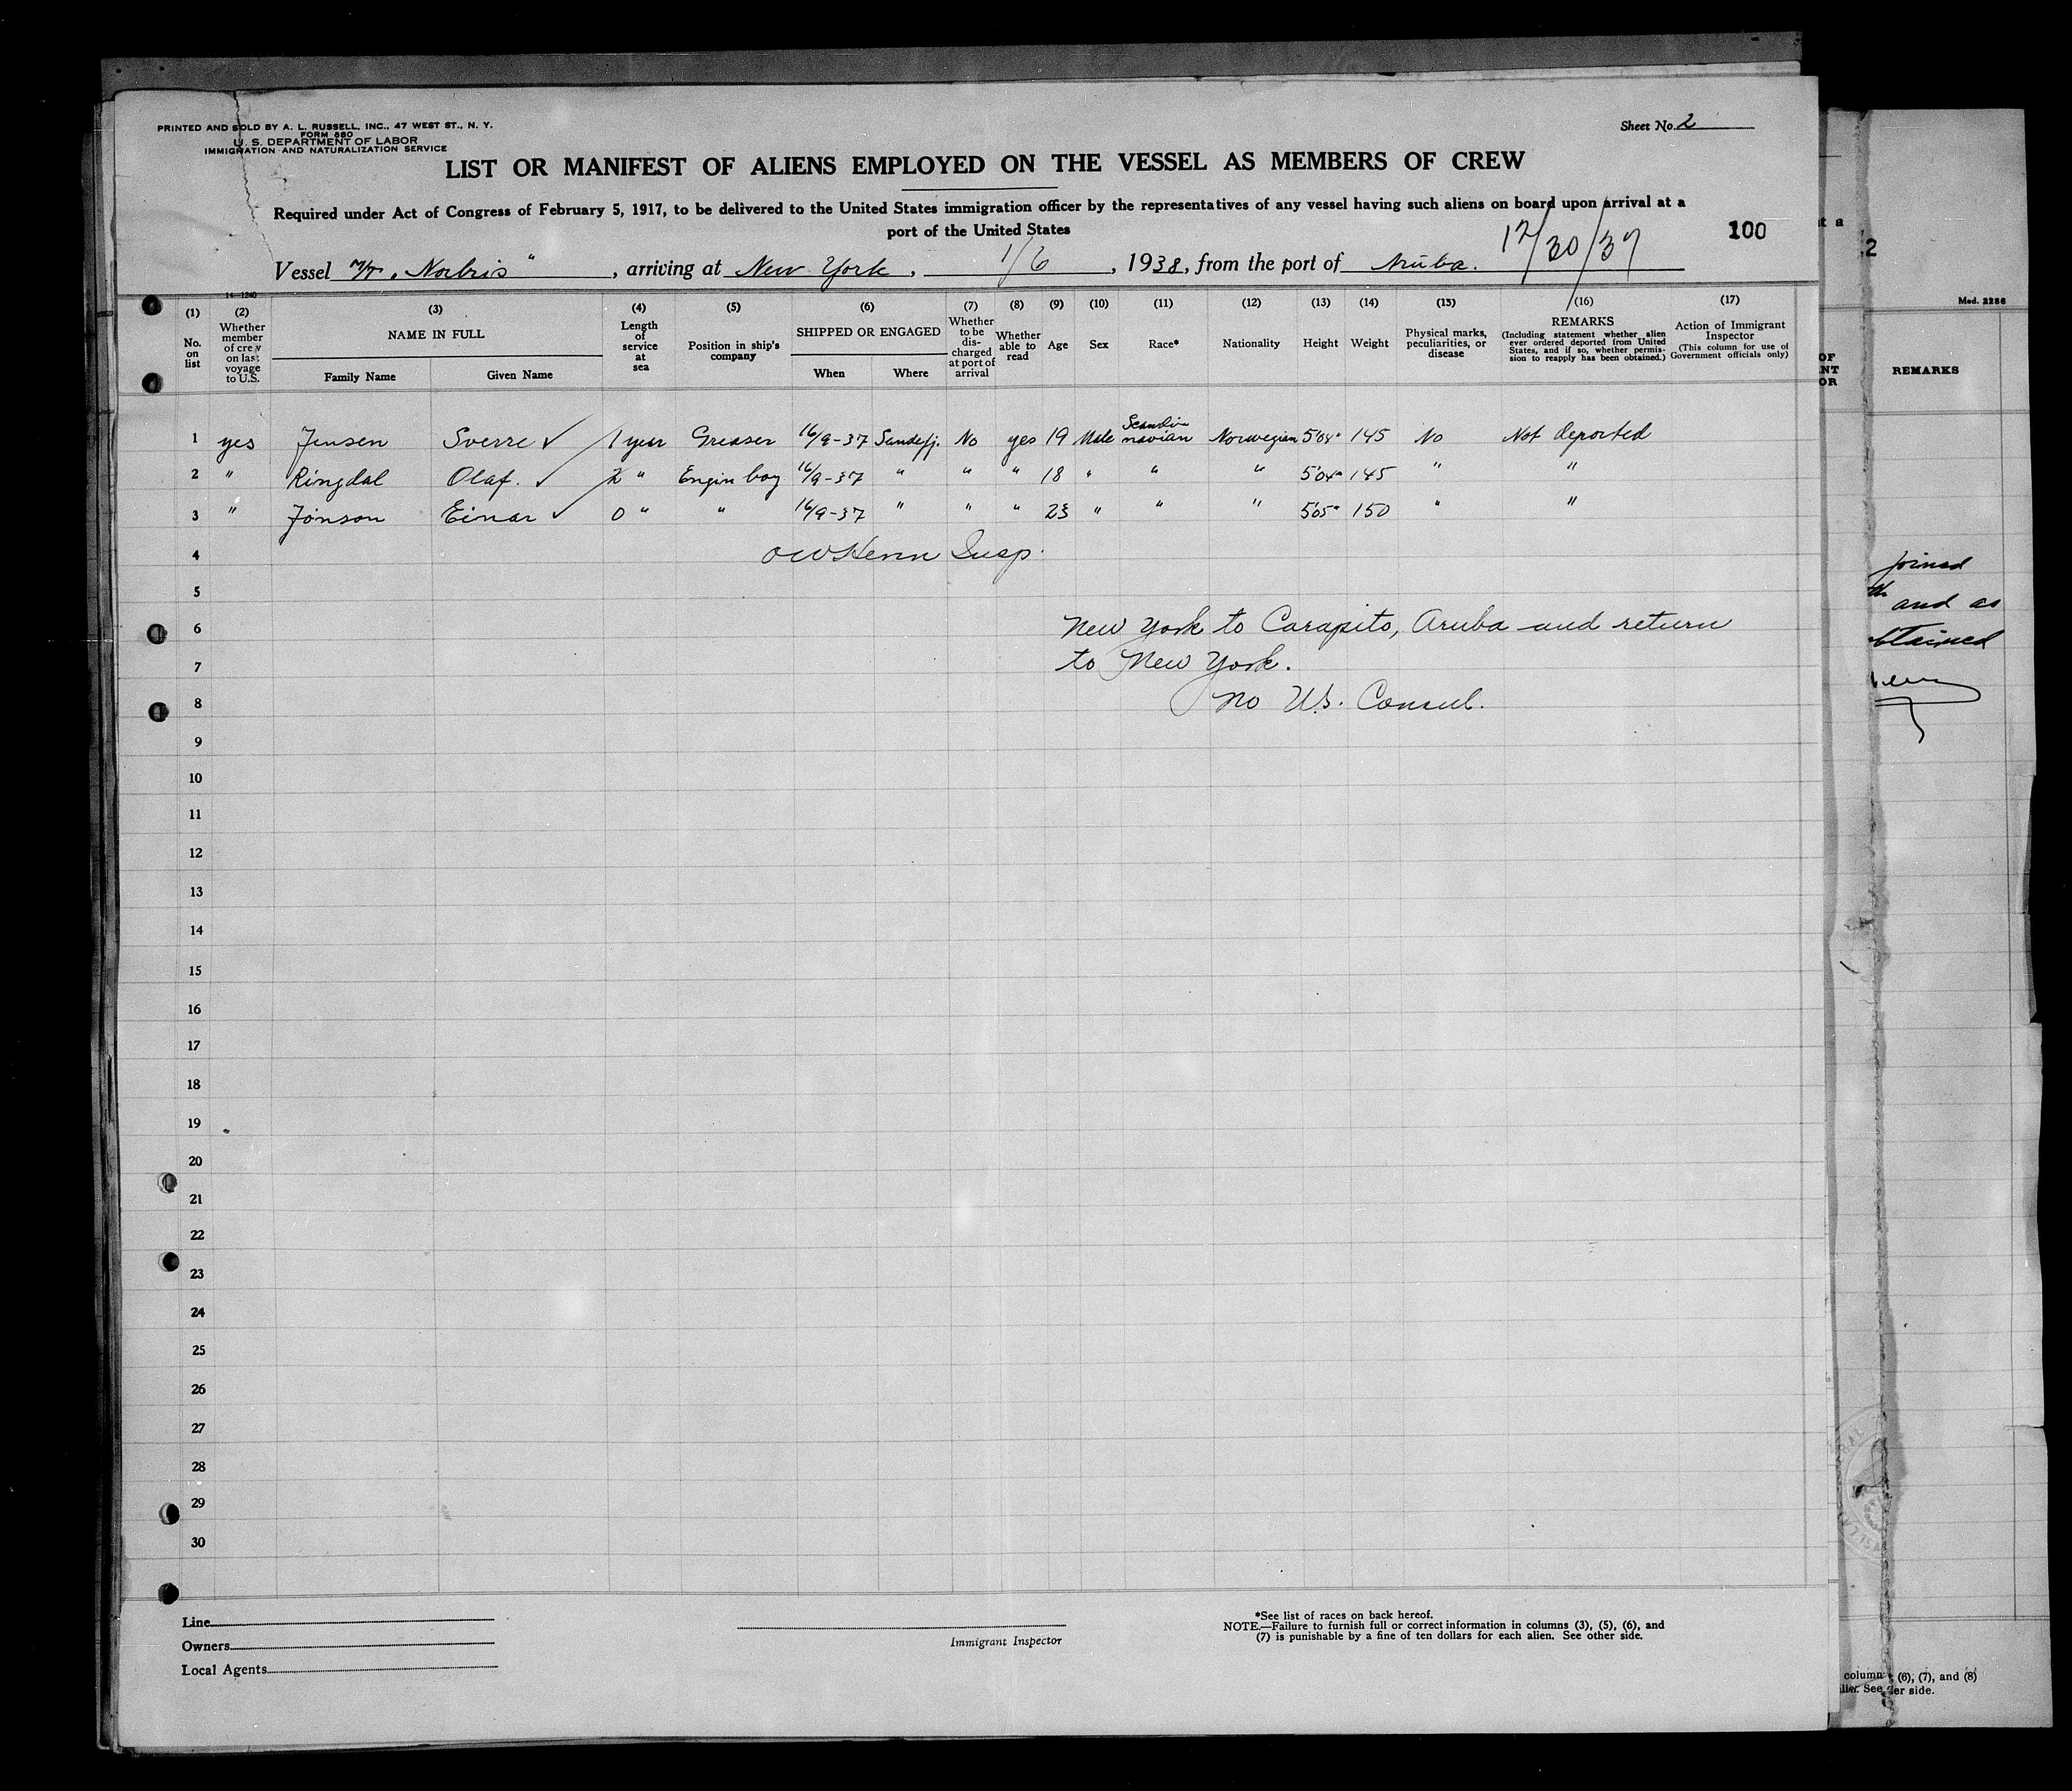 PRINTED AND SOLD BY A. L. RUSSELL, INC., 47 WEST ST., N. Y.
FORM 680
U. S. DEPARTMENT OF LABOR
IMMIGRATION AND NATURALIZATION SERVICE
Sheet No. 2
LIST OR MANIFEST OF ALIENS EMPLOYED ON THE VESSEL AS MEMBERS OF CREW
Required under Act of Congress of February 5, 1917, to be delivered to the United States immigration officer by the representatives of any vessel having such aliens on board upon arrival at a
port of the United States
100
12/30/37
Vessel M/T. "Norbris", arriving at New York, 1/6, 1938, from the port of Aruba.
14-1240
(1) (2) (3) (4) (5) (6) (7) (8) (9) (10) (11) (12) (13) (14) (15) (16) (17)
No. on list
Whether member of crew on last voyage to U.S.
NAME IN FULL
Family Name
Given Name
Length of service at sea
Position in ship's company
SHIPPED OR ENGAGED
When
Where
Whether to be discharged at port of arrival
Whether able to read
Age
Sex
Race*
Nationality
Height
Weight
Physical marks, peculiarities, or disease
REMARKS
(Including statement whether alien ever ordered deported from United States, and if so, whether permission to reapply has been obtained.)
Action of Immigrant Inspector
(This column for use of Government officials only)
1 yes Jensen Sverre ✓ 1 year Greaser 16/9-37 Sandefj. No yes 19 Male Scandinavian Norwegian 5'04" 145 No Not deported
2 " Ringdal Olaf. ✓ 2 " Engin boy 16/9-37 " " " 18 " " " 5'04" 145 " "
3 " Jonson Einar ✓ 0 " " 16/9-37 " " " 23 " " " 5'05" 150 " "
4 Insp.
5
6 New York to Carapito, Aruba and return
7 to New York.
8 No U.S. Consul.
9
10
11
12
13
14
15
16
17
18
19
20
21
22
23
24
25
26
27
28
29
30
Line
Owners
Local Agents
Immigrant Inspector
*See list of races on back hereof.
NOTE.—Failure to furnish full or correct information in columns (3), (5), (6), and
(7) is punishable by a fine of ten dollars for each alien. See other side.
t a
2
Mod. 2286
OF
NT
OR
REMARKS
joined
and as
btained
column (6), (7), and (8)
See der side.